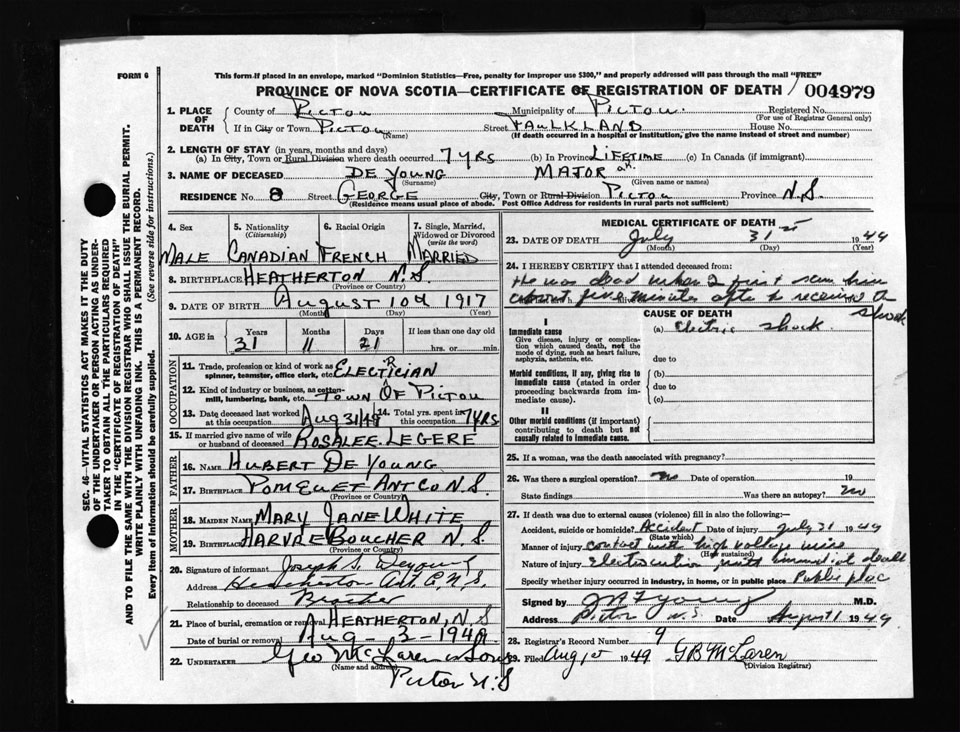 FORM 6
This form if placed in an envelope, marked "Dominion Statistics—Free, penalty for improper use $300," and properly addressed will pass through the mail "FREE"
PROVINCE OF NOVA SCOTIA—CERTIFICATE OF REGISTRATION OF DEATH / 004979
1. PLACE OF DEATH { County of PICTOU Municipality of PICTOU. Registered No.
(For use of Registrar General only)
If in City or Town PICTOU (Name) Street FAULKLAND House No.
(If death occurred in a hospital or institution, give the name instead of street and number)
2. LENGTH OF STAY (in years, months and days)
(a) In City, Town or Rural Division where death occurred 7 YRS (b) In Province LIFETIME (c) In Canada (if immigrant)
3. NAME OF DECEASED DE YOUNG (Surname) MAJOR (Given name or names)
RESIDENCE No. 8 Street GEORGE City, Town or Rural Division PICTOU Province N.S.
(Residence means usual place of abode. Post Office Address for residents in rural parts not sufficient)
4. Sex
5. Nationality (Citizenship)
6. Racial Origin
7. Single, Married, Widowed or Divorced (write the word)
MALE CANADIAN FRENCH MARRIED
8. BIRTHPLACE HEATHERTON N.S.
(Province or Country)
9. DATE OF BIRTH AUGUST 10th 1917
(Month) (Day) (Year)
10. AGE in Years Months Days If less than one day old
31 11 21 hrs. or min.
OCCUPATION
11. Trade, profession or kind of work as spinner, teamster, office clerk, etc. ELECTRICIAN
12. Kind of industry or business, as cotton-mill, lumbering, bank, etc. TOWN OF PICTOU
13. Date deceased last worked at this occupation Aug 31/49 14. Total yrs. spent in this occupation 7 YRS
15. If married give name of wife or husband of deceased ROSALEE LEGERE
FATHER
16. NAME HUBERT DE YOUNG
17. BIRTHPLACE POMQUET ANT CO N.S.
(Province or Country)
MOTHER
18. MAIDEN NAME MARY JANE WHITE
19. BIRTHPLACE HARVRE BOUCHER N.S.
(Province or Country)
20. Signature of informant Joseph S. Deyoung
Address Heatherton Ant. C. N.S.
Relationship to deceased Brother
21. Place of burial, cremation or removal HEATHERTON, N.S
Date of burial or removal Aug - 3 - 1949
22. UNDERTAKER Geo McLaren & Sons
(Name and address)
Pictou N.S
MEDICAL CERTIFICATE OF DEATH
23. DATE OF DEATH July 31st 1949
(Month) (Day) (Year)
24. I HEREBY CERTIFY that I attended deceased from:
He was dead when I first saw him
about five minutes after he received a
shock
CAUSE OF DEATH
I
Immediate cause (a) Electric shock.
Give disease, injury or complication which caused death, not the mode of dying, such as heart failure, asphyxia, asthenia, etc.
due to
Morbid conditions, if any, giving rise to immediate cause (stated in order proceeding backwards from immediate cause).
(b)
due to
(c)
II
Other morbid conditions (if important) contributing to death but not causally related to immediate cause.
25. If a woman, was the death associated with pregnancy?
26. Was there a surgical operation? no Date of operation 19
State findings Was there an autopsy? no
27. If death was due to external causes (violence) fill in also the following:—
Accident, suicide or homicide? Accident Date of injury July 31 1949
(State which)
Manner of injury contact with high voltage wire
(How sustained)
Nature of injury Electrocution with immediate death
Specify whether injury occurred in industry, in home, or in public place Public plac
Signed by Young M.D.
Address Pictou N.S. Date August 1 1949
28. Registrar's Record Number 9
29. Filed Aug 1st 1949 GB McLaren
(Division Registrar)
SEC. 46—VITAL STATISTICS ACT MAKES IT THE DUTY OF THE UNDERTAKER OR PERSON ACTING AS UNDERTAKER TO OBTAIN ALL THE PARTICULARS REQUIRED IN THE "CERTIFICATE OF REGISTRATION OF DEATH"
AND TO FILE THE SAME WITH THE DIVISION REGISTRAR WHO SHALL ISSUE THE BURIAL PERMIT.
WRITE PLAINLY WITH UNFADING INK. THIS IS A PERMANENT RECORD.
Every item of information should be carefully supplied.
(See reverse side for instructions.)